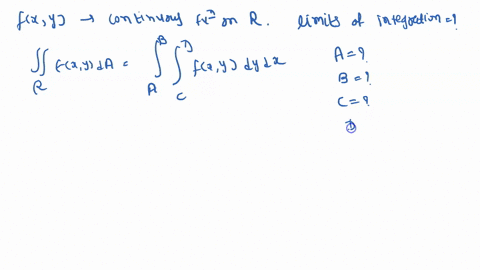 f(x,y) → continuous fxⁿ on R. limits of integration=?
∬_R f(x,y) dA = ∫_A^B ∫_C^D f(x,y) dy dx
A=?
B=?
C=?
D